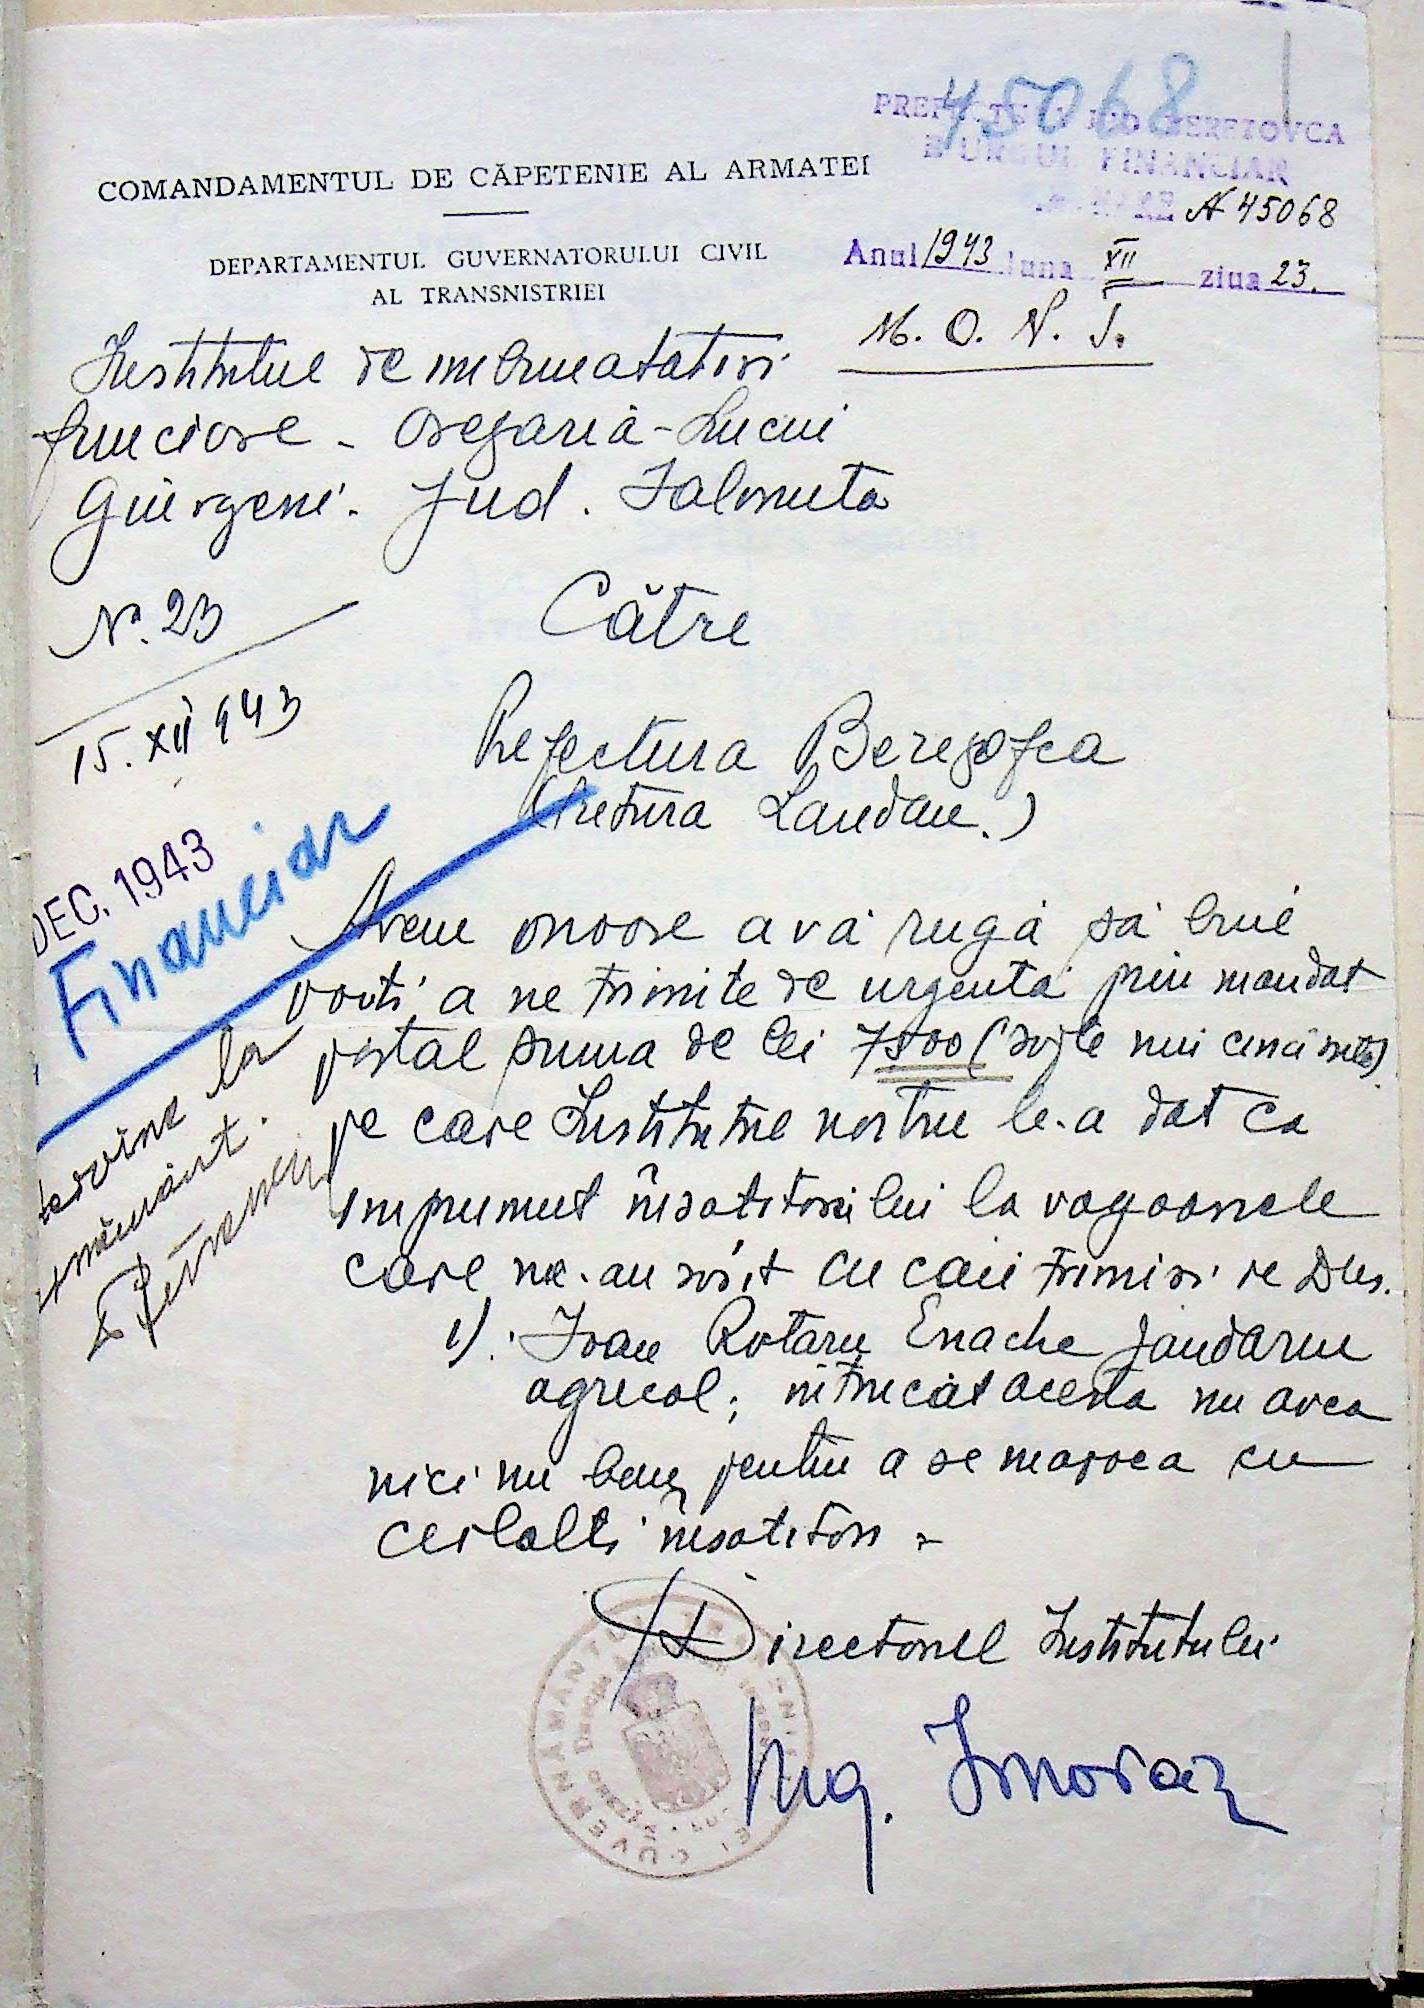 45068
PREFECTURA JUD. BEREZOVCA
FINANCIAR
N 45068
Anul 1943 luna XII ziua 23.
M. O. N. T.
COMANDAMENTUL DE CĂPETENIE AL ARMATEI
DEPARTAMENTUL GUVERNATORULUI CIVIL
AL TRANSNISTRIEI
Institutul de
Giurgeni. Jud. Ialomita
No. 23
15. XII 943
Către
Prefectura Berezofca
(Pretura Landau.)
DEC. 1943
Financiar
la
Avem onoore a vă rugă să bine
voiti a ne trimite de urgentă prin mandat
postal suma de lei 7500 (sapte mii cinci sute)
pe care Institutul nostru le-a dat ca
imprumut însotitorului la vagoanele
care ne-au sosit cu caii trimisi de Dvs.
1). Ioan Rotaru Enache jandarm
agricol; întrucât acesta nu avea
nici un ban pentru a se inapoea cu
ceilalti însotitori
Directorul Institutului
Ing.